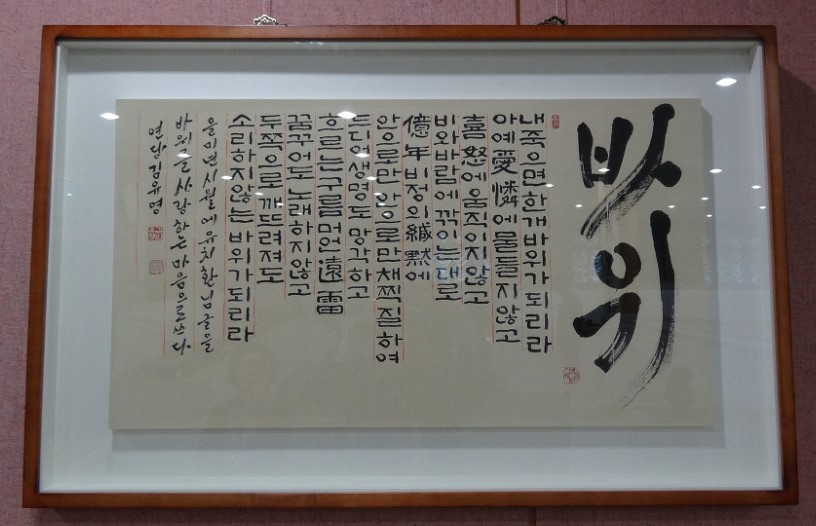 바위
내 죽으면 한 개 바위가 되리라
아예 愛憐에 물들지 않고
喜怒에 움직이지 않고
비와 바람에 깎이는 대로
億年 비정의 緘黙에
안으로만 안으로만 채찍질하여
드디어 생명도 망각하고
흐르는 구름 머언 遠雷
꿈꾸어도 노래하지 않고
두 쪽으로 깨뜨려져도
소리하지 않는 바위가 되리라
을미년 시월에 유치환님 글을
바위를 사랑하는 마음으로 쓰다
연당 김유영